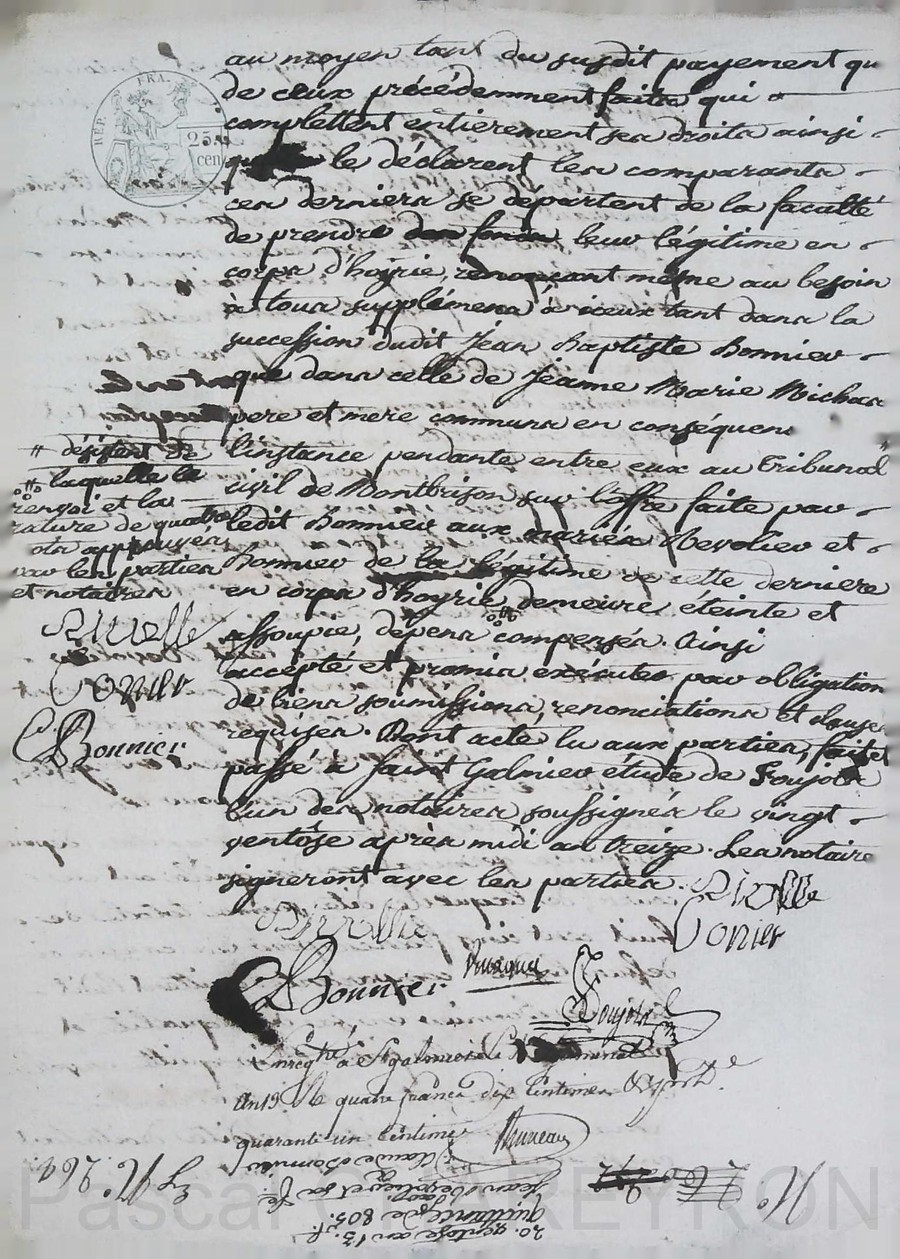 REP. FRA.
25
cen
au moyen tant du susdit payement qu
de ceux précédemment faits qui
complettent entierement ses droits ainsi
que le déclarent les comparants
ces derniers se départent de la faculté
de prendre leur légitime en
corps d'hoyrie, renonçant même au besoin
à tous suppléments à iceux tant dans la
succession dudit Jean Baptiste Bonnier
que dans celle de Jeanne Marie Michas
pere et mere communs en conséquens
l'instance pendante entre eux au tribunal
civil de Montbrison sur l'offre faite par
ledit Bonnier aux mariés Revolier et
Bonnier de la légitime de cette derniere
en corps d'hoyrie, demeure éteinte et
assoupie, dépens compensés. Ainsi
accepté et promis exécuter par obligation
de biens soumissions, renonciations et clauses
requises. Dont acte, lu aux parties, fait et
passé à Saint Galmier étude de Foujols
l'un des notaires soussignés le vingt
ventôse après midi an treize. Les notaires
signeront avec les parties.
désistent de
laquelle le
renvoi et la
rature de quatre
mots approuvés
par les parties
et notaires
Bonnier
Bonnier
Foujols
Enregtré à St galmier le
an 13 quatre francs dix centimes
quarante un centimes
Claude Bonnier
Jean
quittance de 805 f
20 ventose an 13
Nº 26
Nº 264
Pascal REYRON